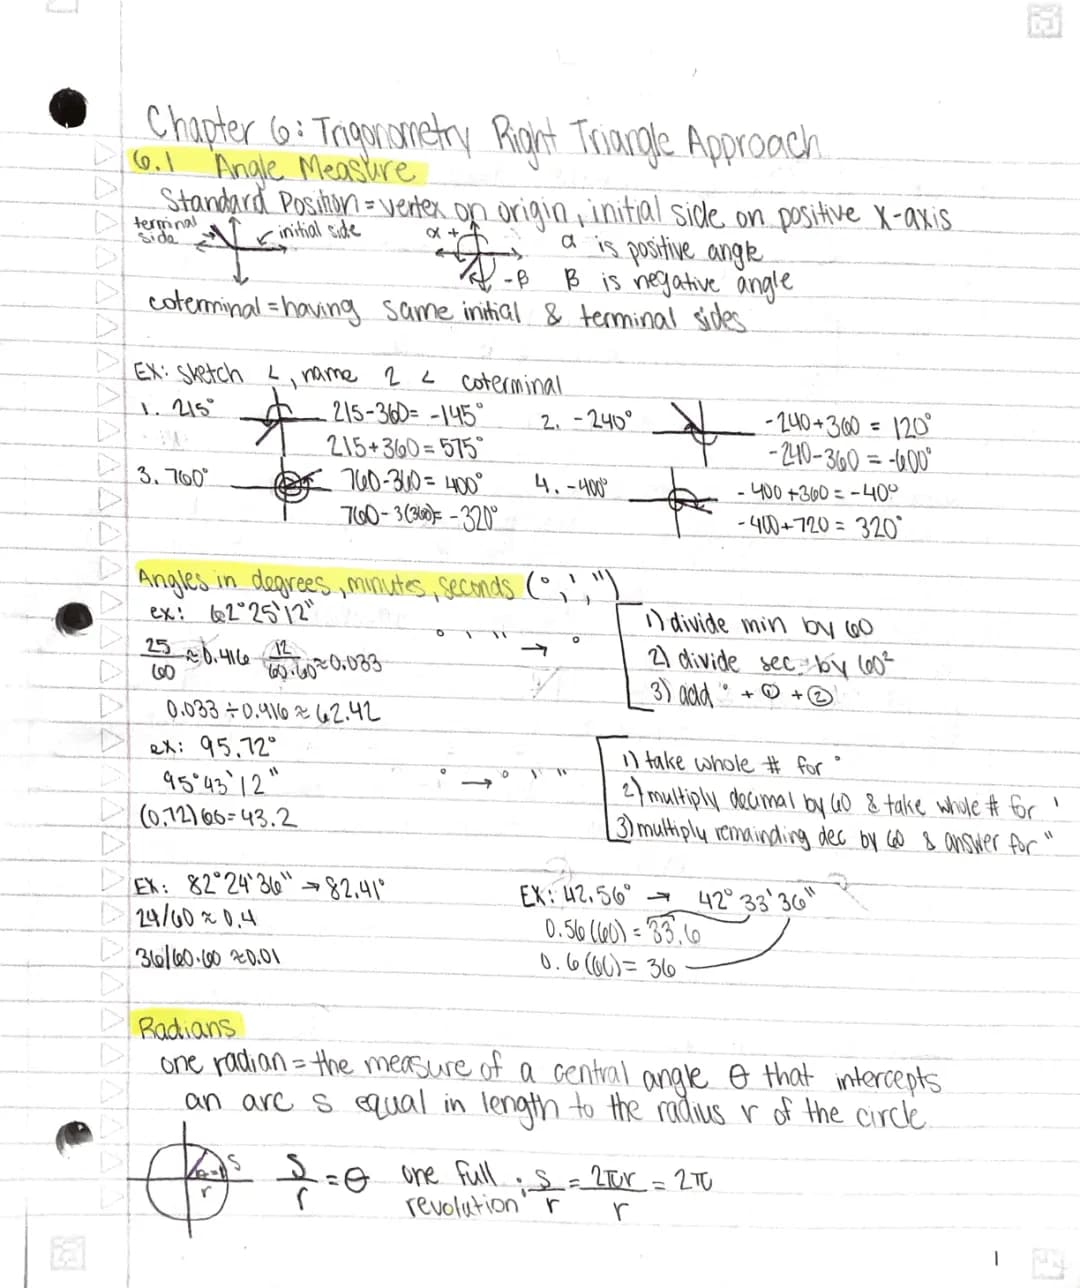 Chapter 6: Trigonometry Right Triangle Approach
6.1 Angle Measure
Standard Position = vertex on origin, initial side on positive x-axis
terminal side
initial side
α +
-β
α is positive angle
β is negative angle
coterminal = having same initial & terminal sides
EX: sketch ∠, name 2 ∠ coterminal
1. 215°
215-360= -145°
215+360=575°
2. -240°
-240+360 = 120°
-240-360 = -600°
3. 760°
760-360= 400°
760-3(360)= -320°
4. -400°
-400+360 = -40°
-400+720 = 320°
Angles in degrees, minutes, seconds (°, ', ")
ex: 62°25'12"
25/60 ≈ 0.416 12/60·60 ≈ 0.033
0.033 ÷ 0.416 ≈ 62.42
° ' " → °
1) divide min by 60
2) divide sec by 60²
3) add ° + ① + ②
ex: 95.72°
95°43'12"
(0.72)60=43.2
° → ° ' "
1) take whole # for °
2) multiply decimal by 60 & take whole # for '
3) multiply remainding dec by 60 & answer for "
EX: 82°24'36" → 82.41°
24/60 ≈ 0.4
36/60·60 ≈ 0.01
EX: 42.56° → 42° 33' 36"
0.56(60) = 33.6
0.6(60) = 36
Radians
one radian = the measure of a central angle θ that intercepts
an arc s equal in length to the radius r of the circle
θ=1 s
r
s/r = θ
one full revolution: s/r = 2πr/r = 2π
1